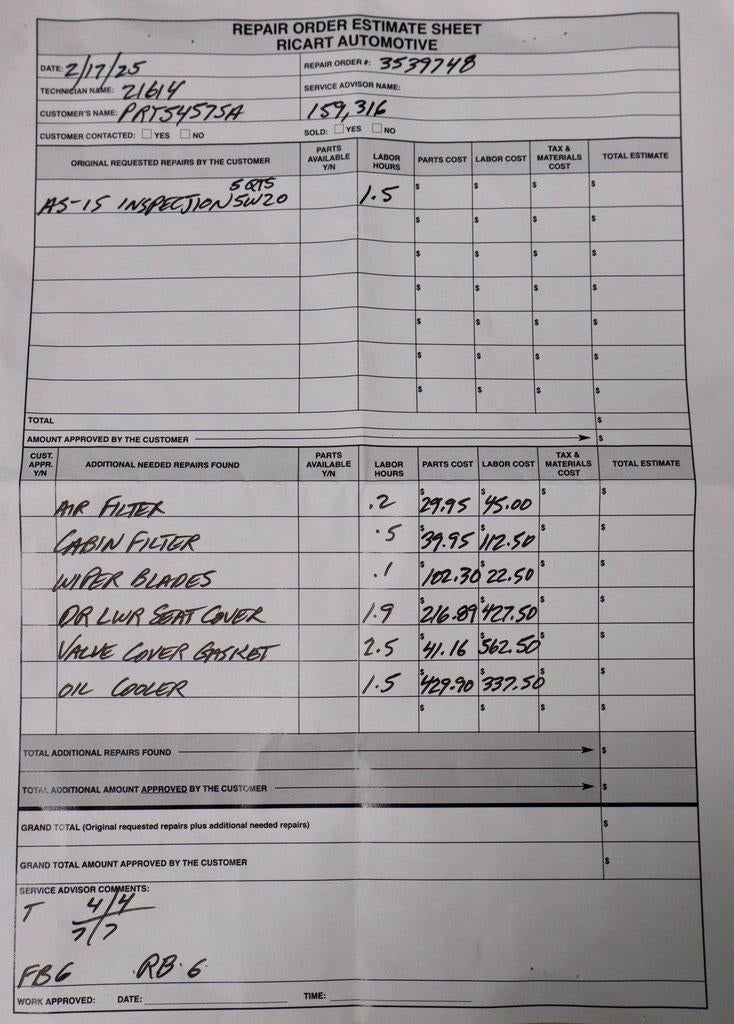 REPAIR ORDER ESTIMATE SHEET
RICART AUTOMOTIVE
DATE: 2/17/25 REPAIR ORDER #: 3539748
TECHNICIAN NAME: 21614 SERVICE ADVISOR NAME:
CUSTOMER'S NAME: PRT54575A 159,316
CUSTOMER CONTACTED: YES NO SOLD: YES NO
ORIGINAL REQUESTED REPAIRS BY THE CUSTOMER PARTS AVAILABLE Y/N LABOR HOURS PARTS COST LABOR COST TAX & MATERIALS COST TOTAL ESTIMATE
5 QTS
AS-15 INSPECTION 5W20 1.5 $ $ $ $
$ $ $ $
$ $ $ $
$ $ $ $
$ $ $ $
$ $ $ $
$ $ $ $
TOTAL $
AMOUNT APPROVED BY THE CUSTOMER $
CUST. APPR. Y/N ADDITIONAL NEEDED REPAIRS FOUND PARTS AVAILABLE Y/N LABOR HOURS PARTS COST LABOR COST TAX & MATERIALS COST TOTAL ESTIMATE
AIR FILTER .2 $29.95 $45.00 $ $
CABIN FILTER .5 $39.95 $112.50 $ $
WIPER BLADES .1 $102.30 $22.50 $ $
DR LWR SEAT COVER 1.9 $216.89 $427.50 $ $
VALVE COVER GASKET 2.5 $41.16 $562.50 $ $
OIL COOLER 1.5 $429.90 $337.50 $ $
$ $ $ $
TOTAL ADDITIONAL REPAIRS FOUND $
TOTAL ADDITIONAL AMOUNT APPROVED BY THE CUSTOMER $
GRAND TOTAL (Original requested repairs plus additional needed repairs) $
GRAND TOTAL AMOUNT APPROVED BY THE CUSTOMER $
SERVICE ADVISOR COMMENTS:
T 4/4
7/7
FB6 RB·6
WORK APPROVED: DATE: TIME: